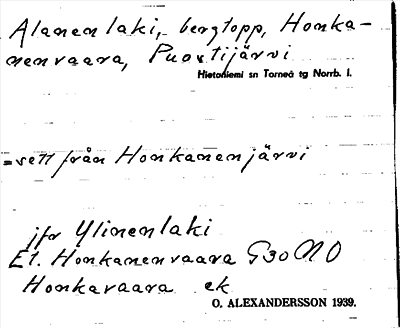 Alanen laki, bergtopp, Honka-
nenvaara, Puostijärvi
Hietaniemi sn Torneå tg Norrb. l.
= sett från Honkanenjärvi
jfr Ylinenlaki
Et. Honkanenvaara G30 NO
Honkavaara ek
O. ALEXANDERSSON 1939.